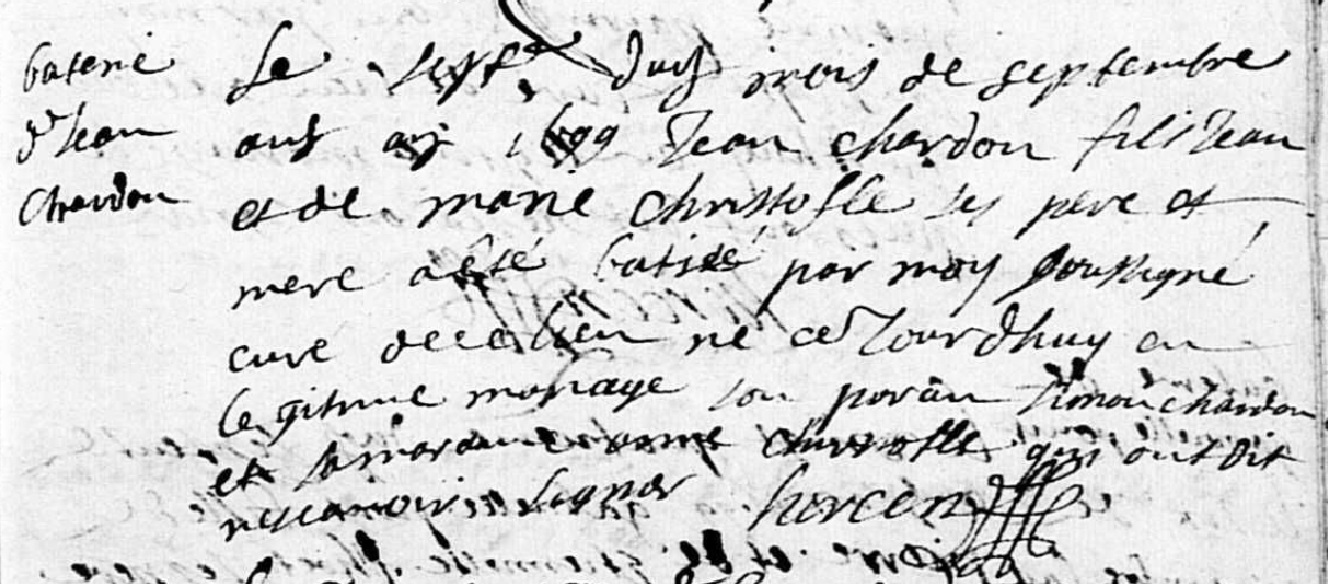 bateme
d Jean
Chardon
Le sept duy mois de septembre
1699 Jean chardon fils Jean
et de marie christofle ses pere et
mere a esté batisé par moy soussigné
curé de ce lieu né ce Jourdhuy en
legitime mariage son parain Simon chardon
et sa maraine anne christofle qui ont dit
ne scavoir signer